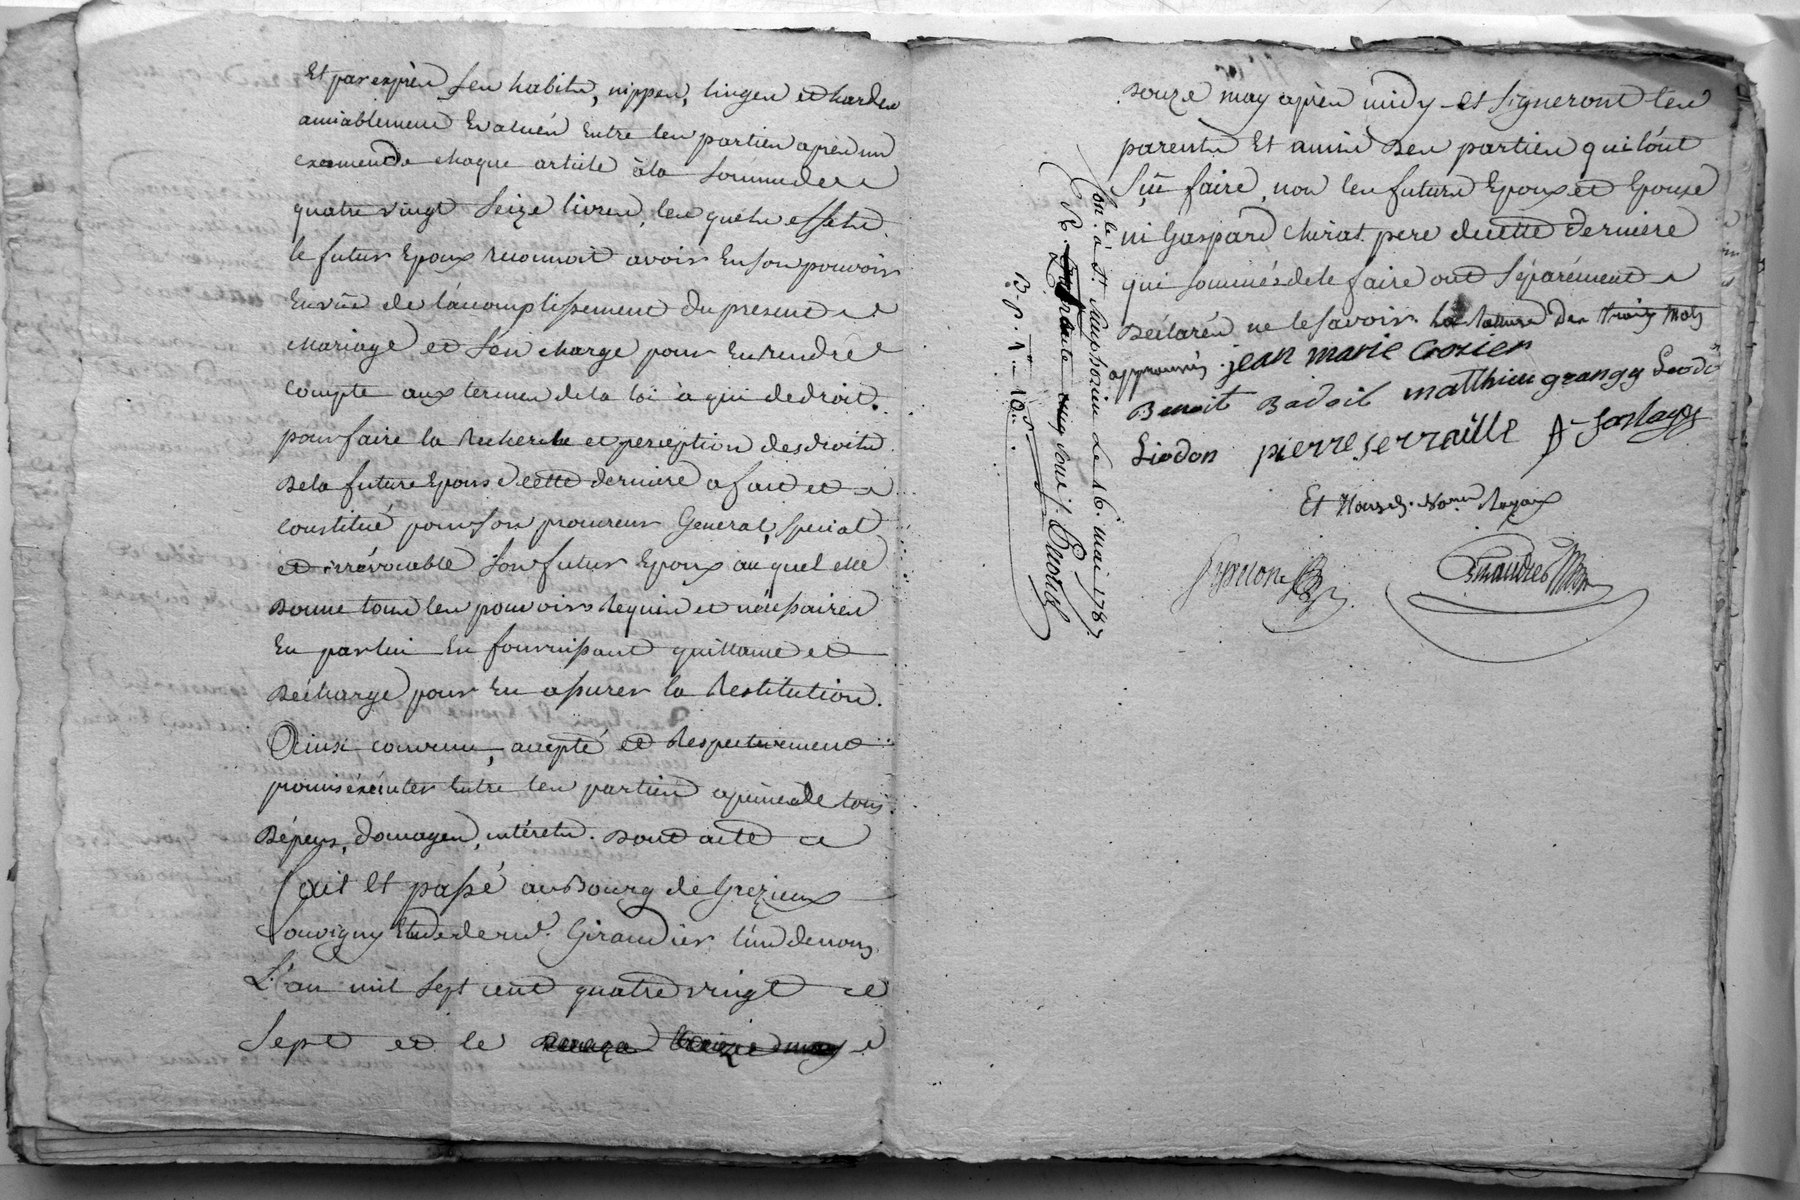 Et par exprès ses habits, nippes, linges et hardes
amiablement Evalués Entre les parties après un
examen de chaque article à la somme de
quatre vingt seize livres, les quels effets
le futur Epoux reconnoit avoir En son pouvoir
En vüe de l'acomplissement du present
mariage et s'en charge pour En rendre
compte aux termes de la loi à qui de droit.
pour faire la Recherche et perception des droits
De la future Epouse cette derniere a fait et
constitué pour son procureur General, special
et irrévocable son futur Epoux au quel elle
Donne tous les pouvoirs Requis et nécessaires
En par lui En fournissant quittance et
Décharge pour En assurer la Restitution.
Ainsi convenu, accepté et Respectivement
promis éxécuter Entre les parties a peine de tous
Dépens, Domages, intérets. Dont acte
fait Et passé au Bourg de Grezieux
Souvigny Etude de me. Giraudier l'un de nous
L'an mil sept cent quatre vingt
Sept et le treize may
Douze may après midy et signeront les
parents Et amis Des parties qui l'ont
sçû faire, non les futurs Epoux et Epouse
ni Gaspard Chirat pere de cette derniere
qui sommés de le faire ont séparément
Déclarés ne le savoir. la Rature Des trois Mots
approuvés jean marie crozier
Benoit Badoil matthieu grangy
Siodon pierre serraille
Et Nousd. Nores. Royaux
Giraudier
Con.lé à St. Simphorien le 16. mai 1787.
R.
B. p. 1.. 10..